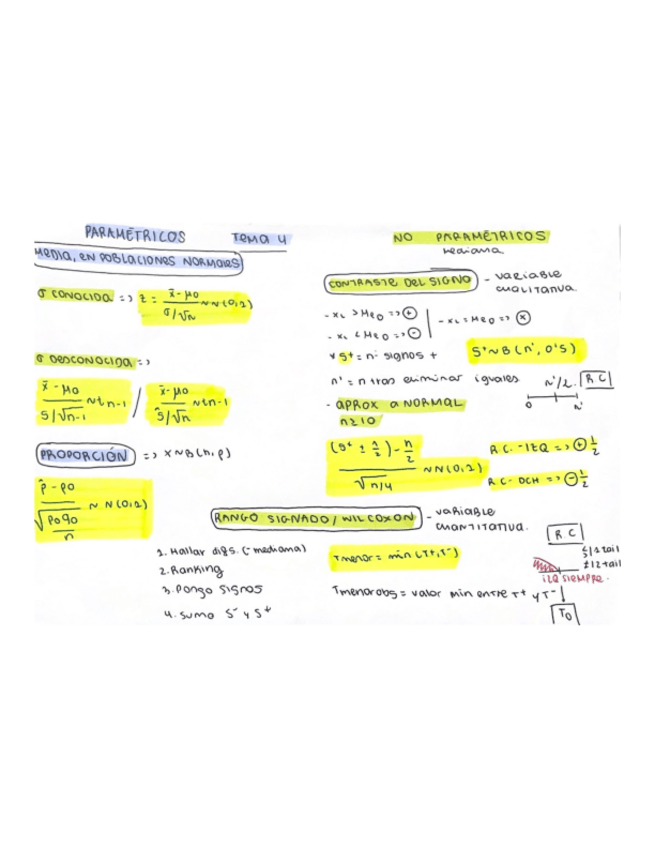 PARAMÉTRICOS TEMA 4
MEDIA, EN POBLACIONES NORMALES
σ CONOCIDA => z = (x̄ - μ0) / (σ/√n) ~ N(0,1)
σ DESCONOCIDA =>
(x̄ - μ0) / (S/√n-1) ~ t n-1 / (x̄ - μ0) / (Ŝ/√n) ~ t n-1
PROPORCIÓN => X ~ B(n,p)
(p̂ - p0) / √(p0q0/n) ~ N(0,1)
NO PARAMÉTRICOS
mediana
CONTRASTE DEL SIGNO - variable cualitativa
- xi > Me0 => ⊕ | - xi = Me0 => ⊗
- xi < Me0 => ⊖
* S+ = nº signos + S+ ~ B(n', 0'5)
n' = n tras eliminar iguales n'/2 R.C
0 n'
- APROX A NORMAL
n ≥ 10
((S+ ± 1/2) - n/2) / √n/4 ~ N(0,1)
R.C. - IZQ => ⊕ 1/2
R.C - DCH => ⊖ 1/2
RANGO SIGNADO / WILCOXON - variable cuantitativa.
1. Hallar difs. (- mediana)
2. Ranking
3. Pongo signos
4. Suma S- y S+
Tmenor = min (T+, T-)
Tmenor obs = valor min entre T+ y T-
T0
R.C
1 tail
≠ | 2 tail
izq siempre.